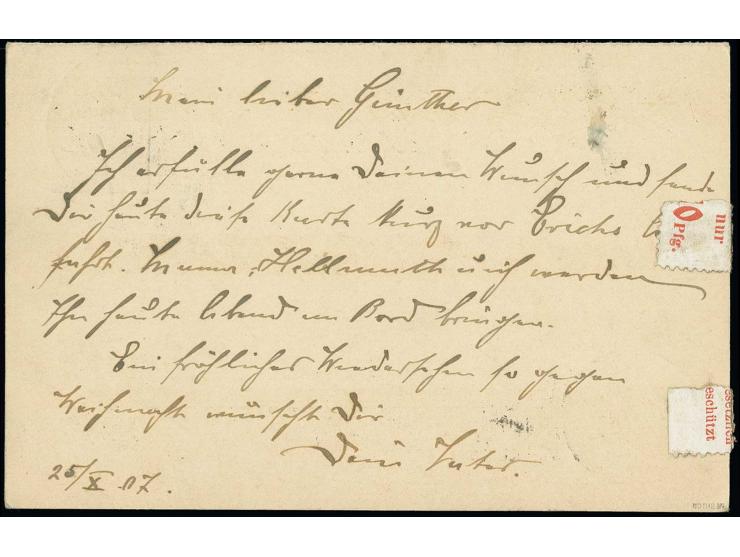 Mein lieber Günther
Ich erfülle gerne Deinen Wunsch und sende
Dir heute diese Karte kurz vor Erichs
fahrt. Mama, Hellmuth u ich werden
Ihn heute Abend an Bord bringen.
Ein fröhliches Wiedersehen so gegen
Weihnacht wünscht Dir
Dein Vater.
25/X 07.
nur
0 Pfg.
esetzlich
eschützt